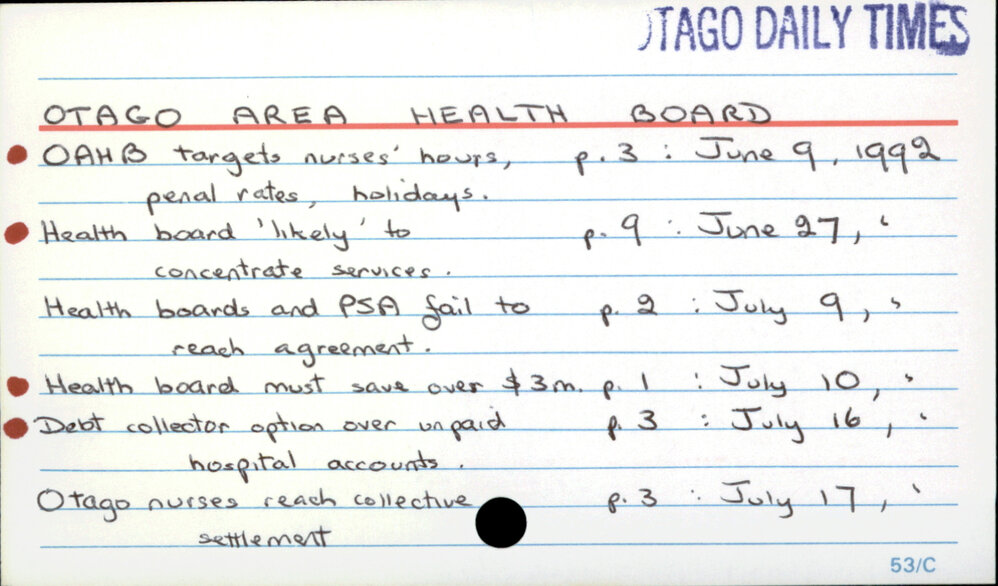 OTAGO DAILY TIMES
OTAGO AREA HEALTH BOARD
OAHB targets nurses' hours, p. 3 : June 9, 1992
penal rates, holidays.
Health board 'likely' to p. 9 : June 27, '
concentrate services.
Health boards and PSA fail to p. 2 : July 9, '
reach agreement.
Health board must save over $3m. p. 1 : July 10, '
Debt collector option over unpaid p. 3 : July 16, '
hospital accounts.
Otago nurses reach collective p. 3 : July 17, '
settlement
53/C